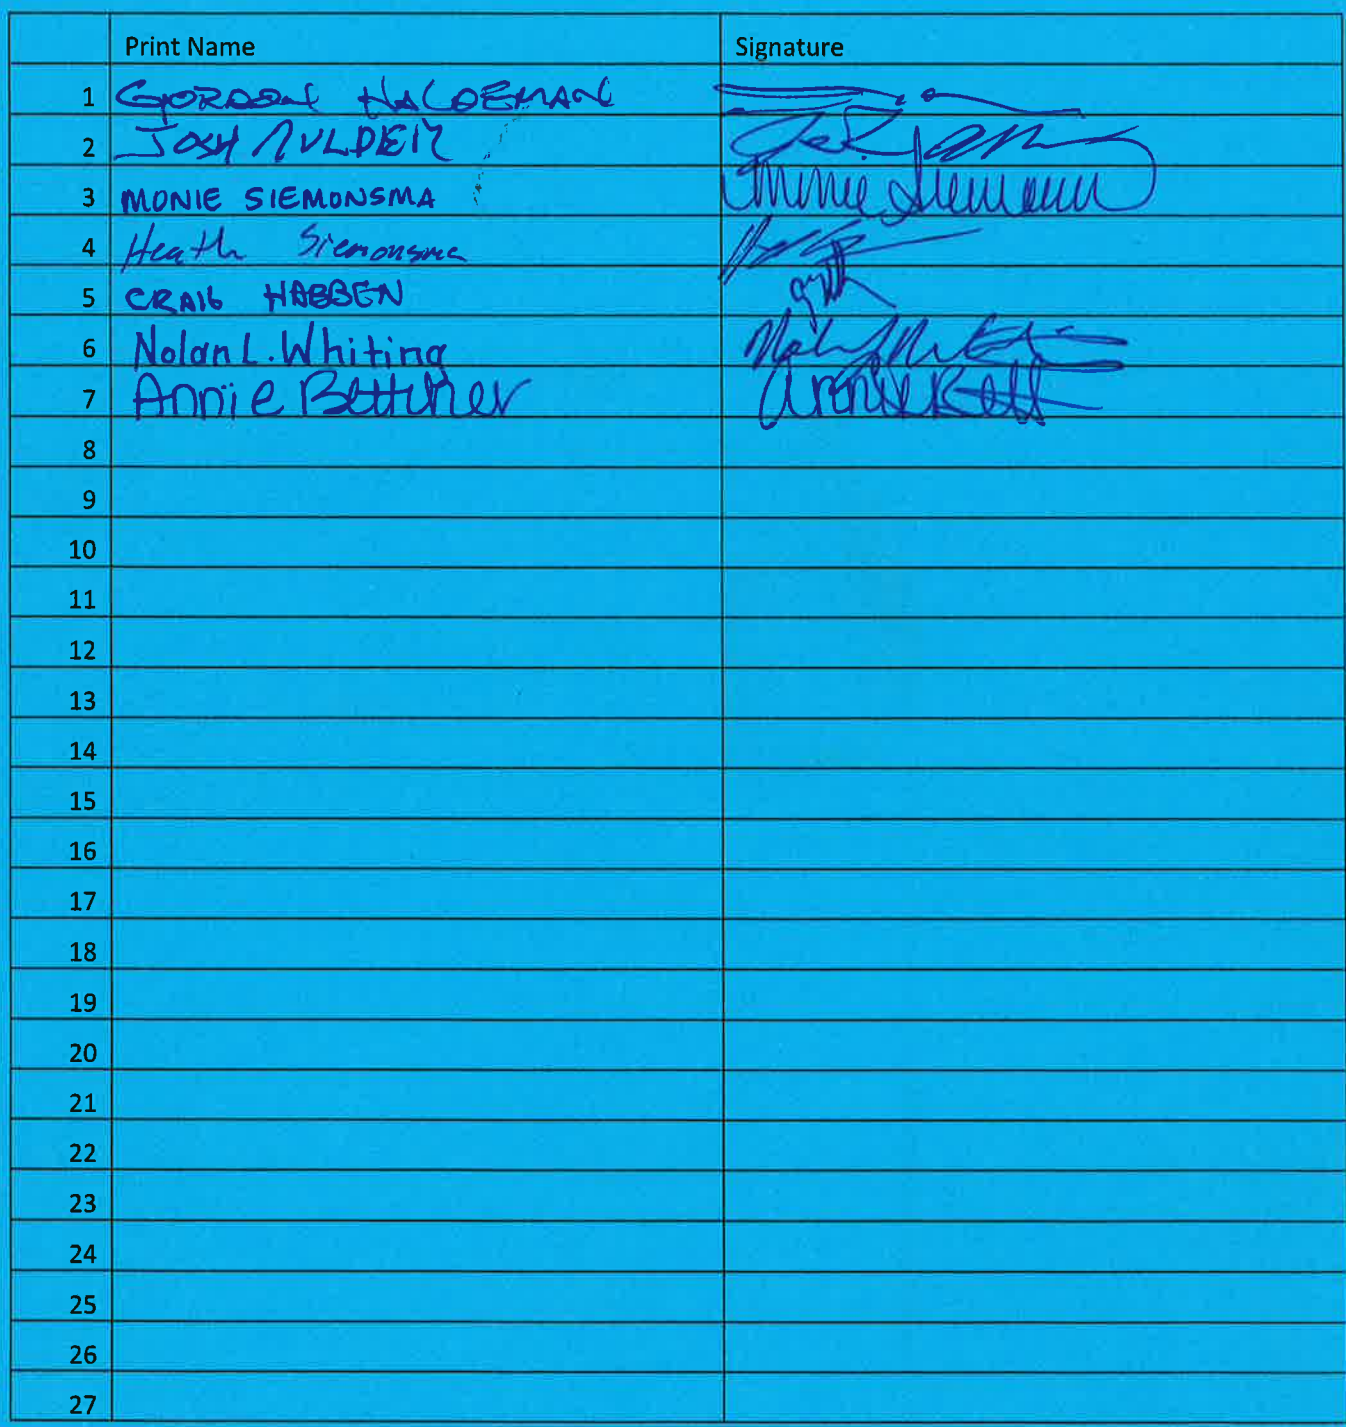 Print Name Signature
1 GORDON HALDEMAN
2 JOSH MULDER
3 MONIE SIEMONSMA Monie Siemonsma
4 Heath Siemonsma
5 CRAIG HABBEN
6 Nolan L. Whiting
7 Annie Bettcher Annie Bett
8
9
10
11
12
13
14
15
16
17
18
19
20
21
22
23
24
25
26
27